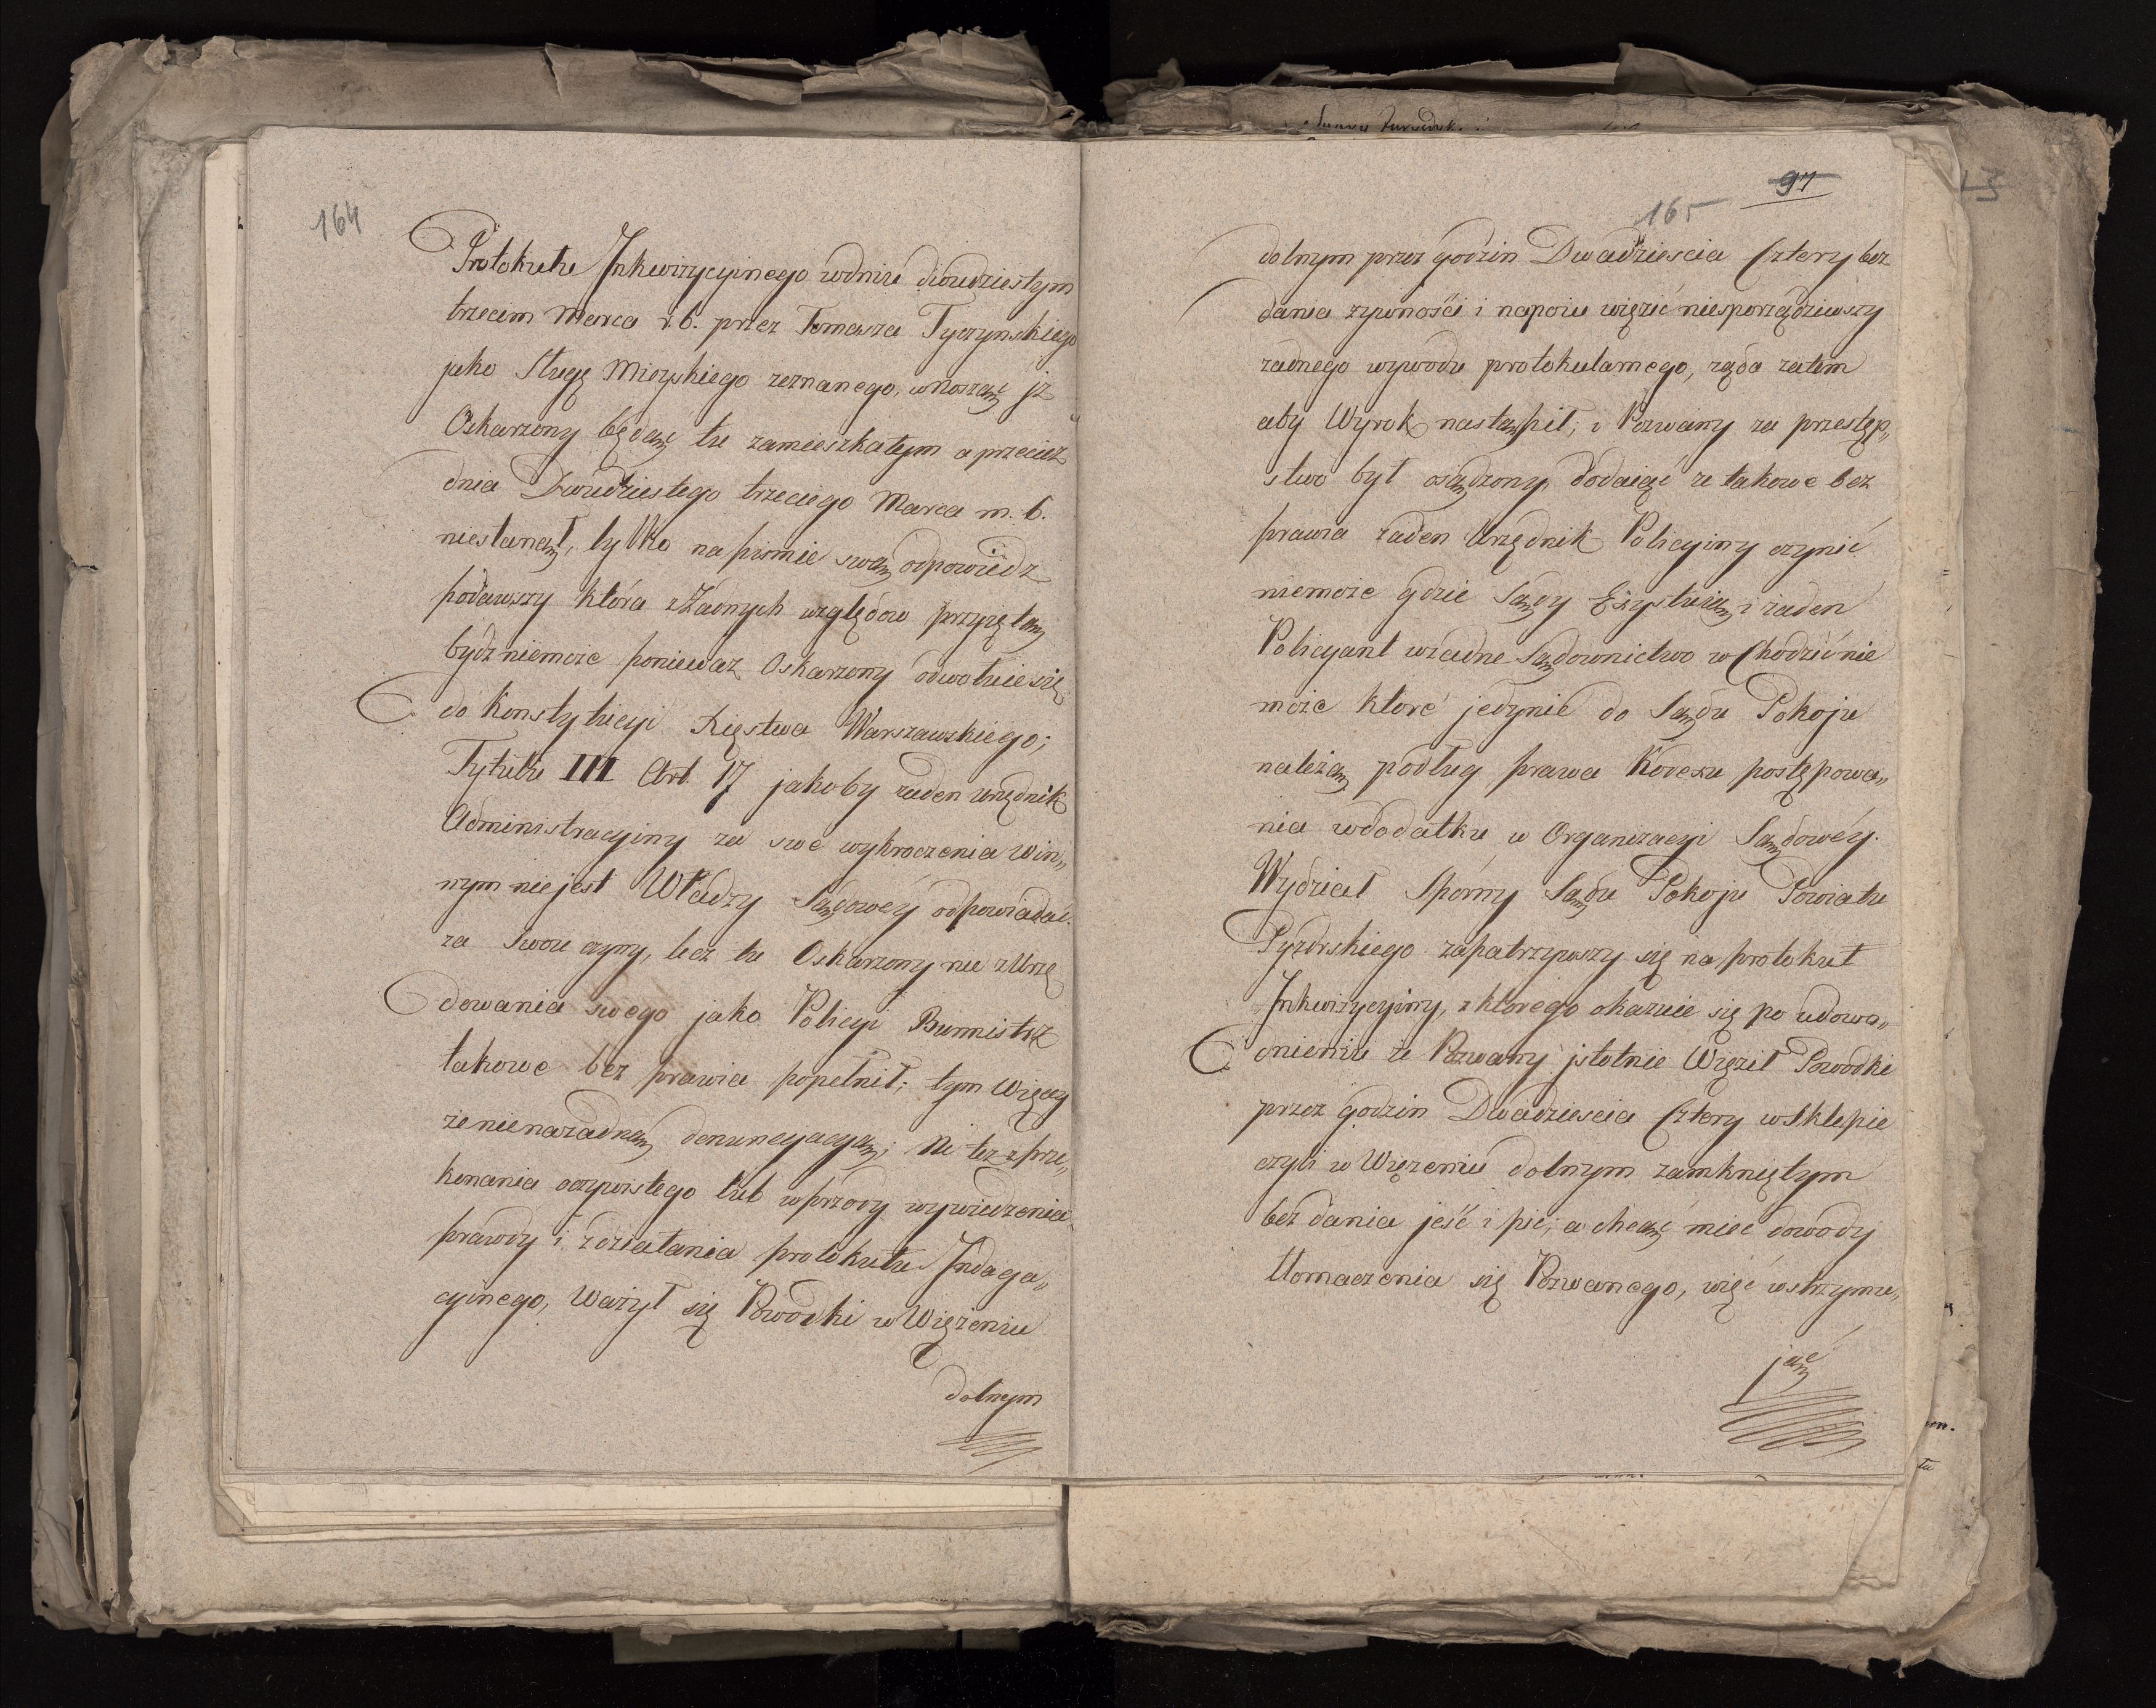 164
Protokułu Inkwizycyinego wdniu dwudziestym
trzecim Marca r. b. przez Tomasza Tyczynskiego
jako Sługę Mieyskiego zeznanego, wnosząć jż
Oskarzony będąć tu zamieszkałym a przeciez
dnia Dwudziestego trzeciego Marca m. b.
niestanął, tylko na pismie swą odpowiedz
podawszy która zŻadnych względow przyiętą
bydz niemoże poniewaz Oskarzony odwołuie się
do Konstytucyi Xięstwa Warszawskiego;
Tytułu III Art. 17 jakoby żaden urzędnik
Administracyiny za swe wykroczenia win„
nym nie jest Władzy Sądowey odpowiadać
za swoie czyny, lecz tu Oskarzony nie z Urzę
dowania swego jako Policyi Burmistrz
takowe bez prawia popełnił; tym więcey
że nienażadną denuncyacyą; Ni tez z prze„
konania oczywistego lub wprzody wywiedzenia
prawdy i zdziałania protokułu Indaga„
cyinego, Ważył się Powodki w Więzeniu
dolnym
97
165
dolnym przez godzin Dwadziescia Cztery bez
dania zywnosći i napoiu więzić niesporządziwszy
zadnego wywodu protokularnego, ząda zatem
aby Wyrok nastąpił, i Pozwany za przestęp„
stwo był osądzony, dodaiąć ze takowe bez
prawia zaden Urzędnik Policyiny czynić
niemoże gdzie Sądy Exystuią i zaden
Policyant wzadne Sądownictwo w Chodzić nie
może ktore jedynie do Sądu Pokoju
należą podług prawa Kodexu postępowa„
nia wdodatku w Organizacyi Sądowéy.
Wydział Sporny Sądu Pokoju Powiatu
Pyzdrskiego zapatrzywszy się na protokuł
Inkwizycyiny, z ktorego okazuie się po udowo„
dnieniu że Pozwany jstotnie Więził Powodki
przez godzin Dwadziescia Cztery w Sklepie
czyli w Więzeniu dolnym zamkniętym
bez dania jeść i pić; a chcąć mieć dowody
tłomaczenia się Pozwanego, więć wstrzymu„
jąć